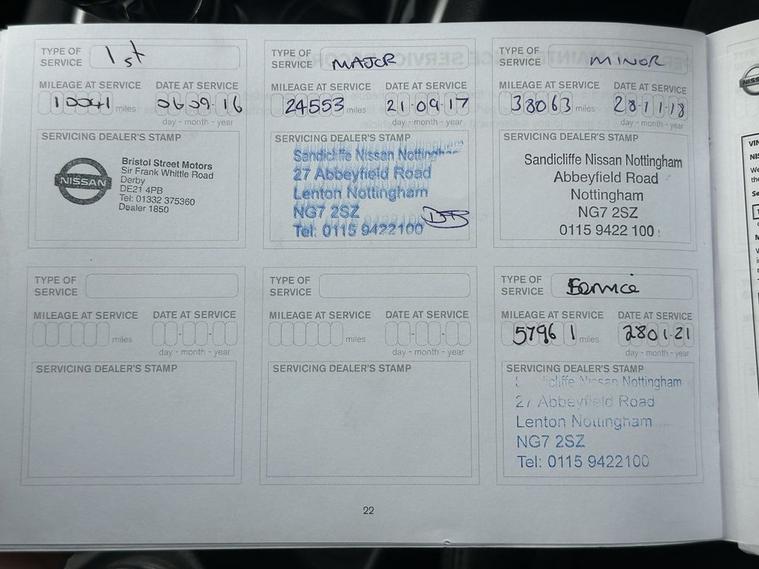 TYPE OF SERVICE 1st
MILEAGE AT SERVICE DATE AT SERVICE
10041 miles 06 09 16
day - month - year
SERVICING DEALER'S STAMP
NISSAN
Bristol Street Motors
Sir Frank Whittle Road
Derby
DE21 4PB
Tel: 01332 375360
Dealer 1850
TYPE OF SERVICE MAJOR
MILEAGE AT SERVICE DATE AT SERVICE
24553 miles 21 09 17
day - month - year
SERVICING DEALER'S STAMP
Sandicliffe Nissan Nottingham
27 Abbeyfield Road
Lenton Nottingham
NG7 2SZ
Tel: 0115 9422100
TYPE OF SERVICE MINOR
MILEAGE AT SERVICE DATE AT SERVICE
38063 miles 28 11 18
day - month - year
SERVICING DEALER'S STAMP
Sandicliffe Nissan Nottingham
Abbeyfield Road
Nottingham
NG7 2SZ
0115 9422 100
TYPE OF SERVICE
MILEAGE AT SERVICE DATE AT SERVICE
miles
day - month - year
SERVICING DEALER'S STAMP
TYPE OF SERVICE
MILEAGE AT SERVICE DATE AT SERVICE
miles
day - month - year
SERVICING DEALER'S STAMP
TYPE OF SERVICE Service
MILEAGE AT SERVICE DATE AT SERVICE
57961 miles 28 01 21
day - month - year
SERVICING DEALER'S STAMP
Nissan Nottingham
27 Abbeyfield Road
Lenton Nottingham
NG7 2SZ
Tel: 0115 9422100
22